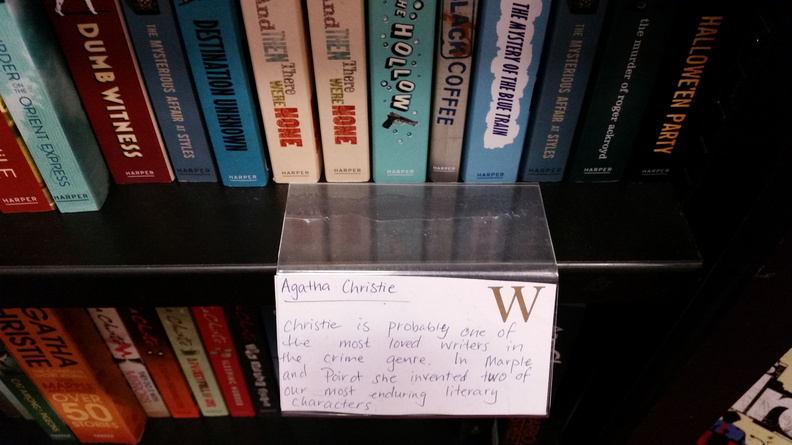 ILE
HARPER
URDER ON THE ORIENT EXPRESS
HARPER
DUMB WITNESS
HARPER
THE MYSTERIOUS AFFAIR AT STYLES
HARPER
DESTINATION UNKNOWN
HARPER
And THEN There WERE NONE
HARPER
And THEN There WERE NONE
HARPER
THE HOLLOW
HARPER
BLACK COFFEE
HARPER
THE MYSTERY OF THE BLUE TRAIN
HARPER
THE MYSTERIOUS AFFAIR AT STYLES
HARPER
the murder of roger ackroyd
HARPER
HALLOWE'EN PARTY
HARPER
Agatha Christie
W
Christie is probably one of
the most loved writers in
the crime genre. In Marple
and Poirot she invented two of
our most enduring literary
characters.
AGATHA
CHRISTIE
MARPLE
OVER
50
STORIES